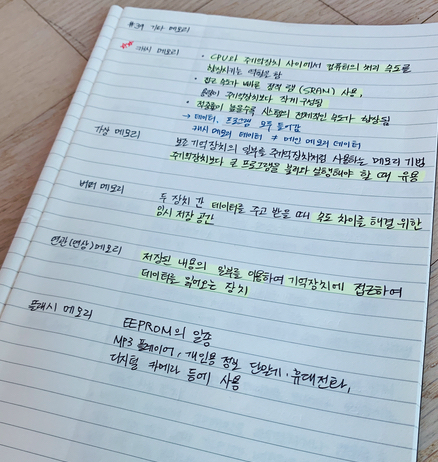 #39 기타 메모리
** 캐시 메모리
· CPU와 주기억장치 사이에서 컴퓨터의 처리 속도를
향상시키는 역할을 함
· 접근 속도가 빠른 정적 램(SRAM) 사용,
용량이 주기억장치보다 작게 구성됨
· 적중률이 높을수록 시스템의 전체적인 속도가 향상됨
→ 데이터, 프로그램 모두 들어감
캐시 메모리 데이터 ≠ 메인 메모리 데이터
가상 메모리
보조기억장치의 일부를 주기억장치처럼 사용하는 메모리 기법
주기억장치보다 큰 프로그램을 불러와 실행해야 할 때 유용
버퍼 메모리
두 장치 간 데이터를 주고 받을 때 속도 차이를 해결 위한
임시 저장 공간
연관(연상)메모리
저장된 내용의 일부를 이용하여 기억장치에 접근하여
데이터를 읽어오는 장치
플래시 메모리
EEPROM의 일종
MP3 플레이어, 개인용 정보 단말기, 휴대전화,
디지털 카메라 등에 사용